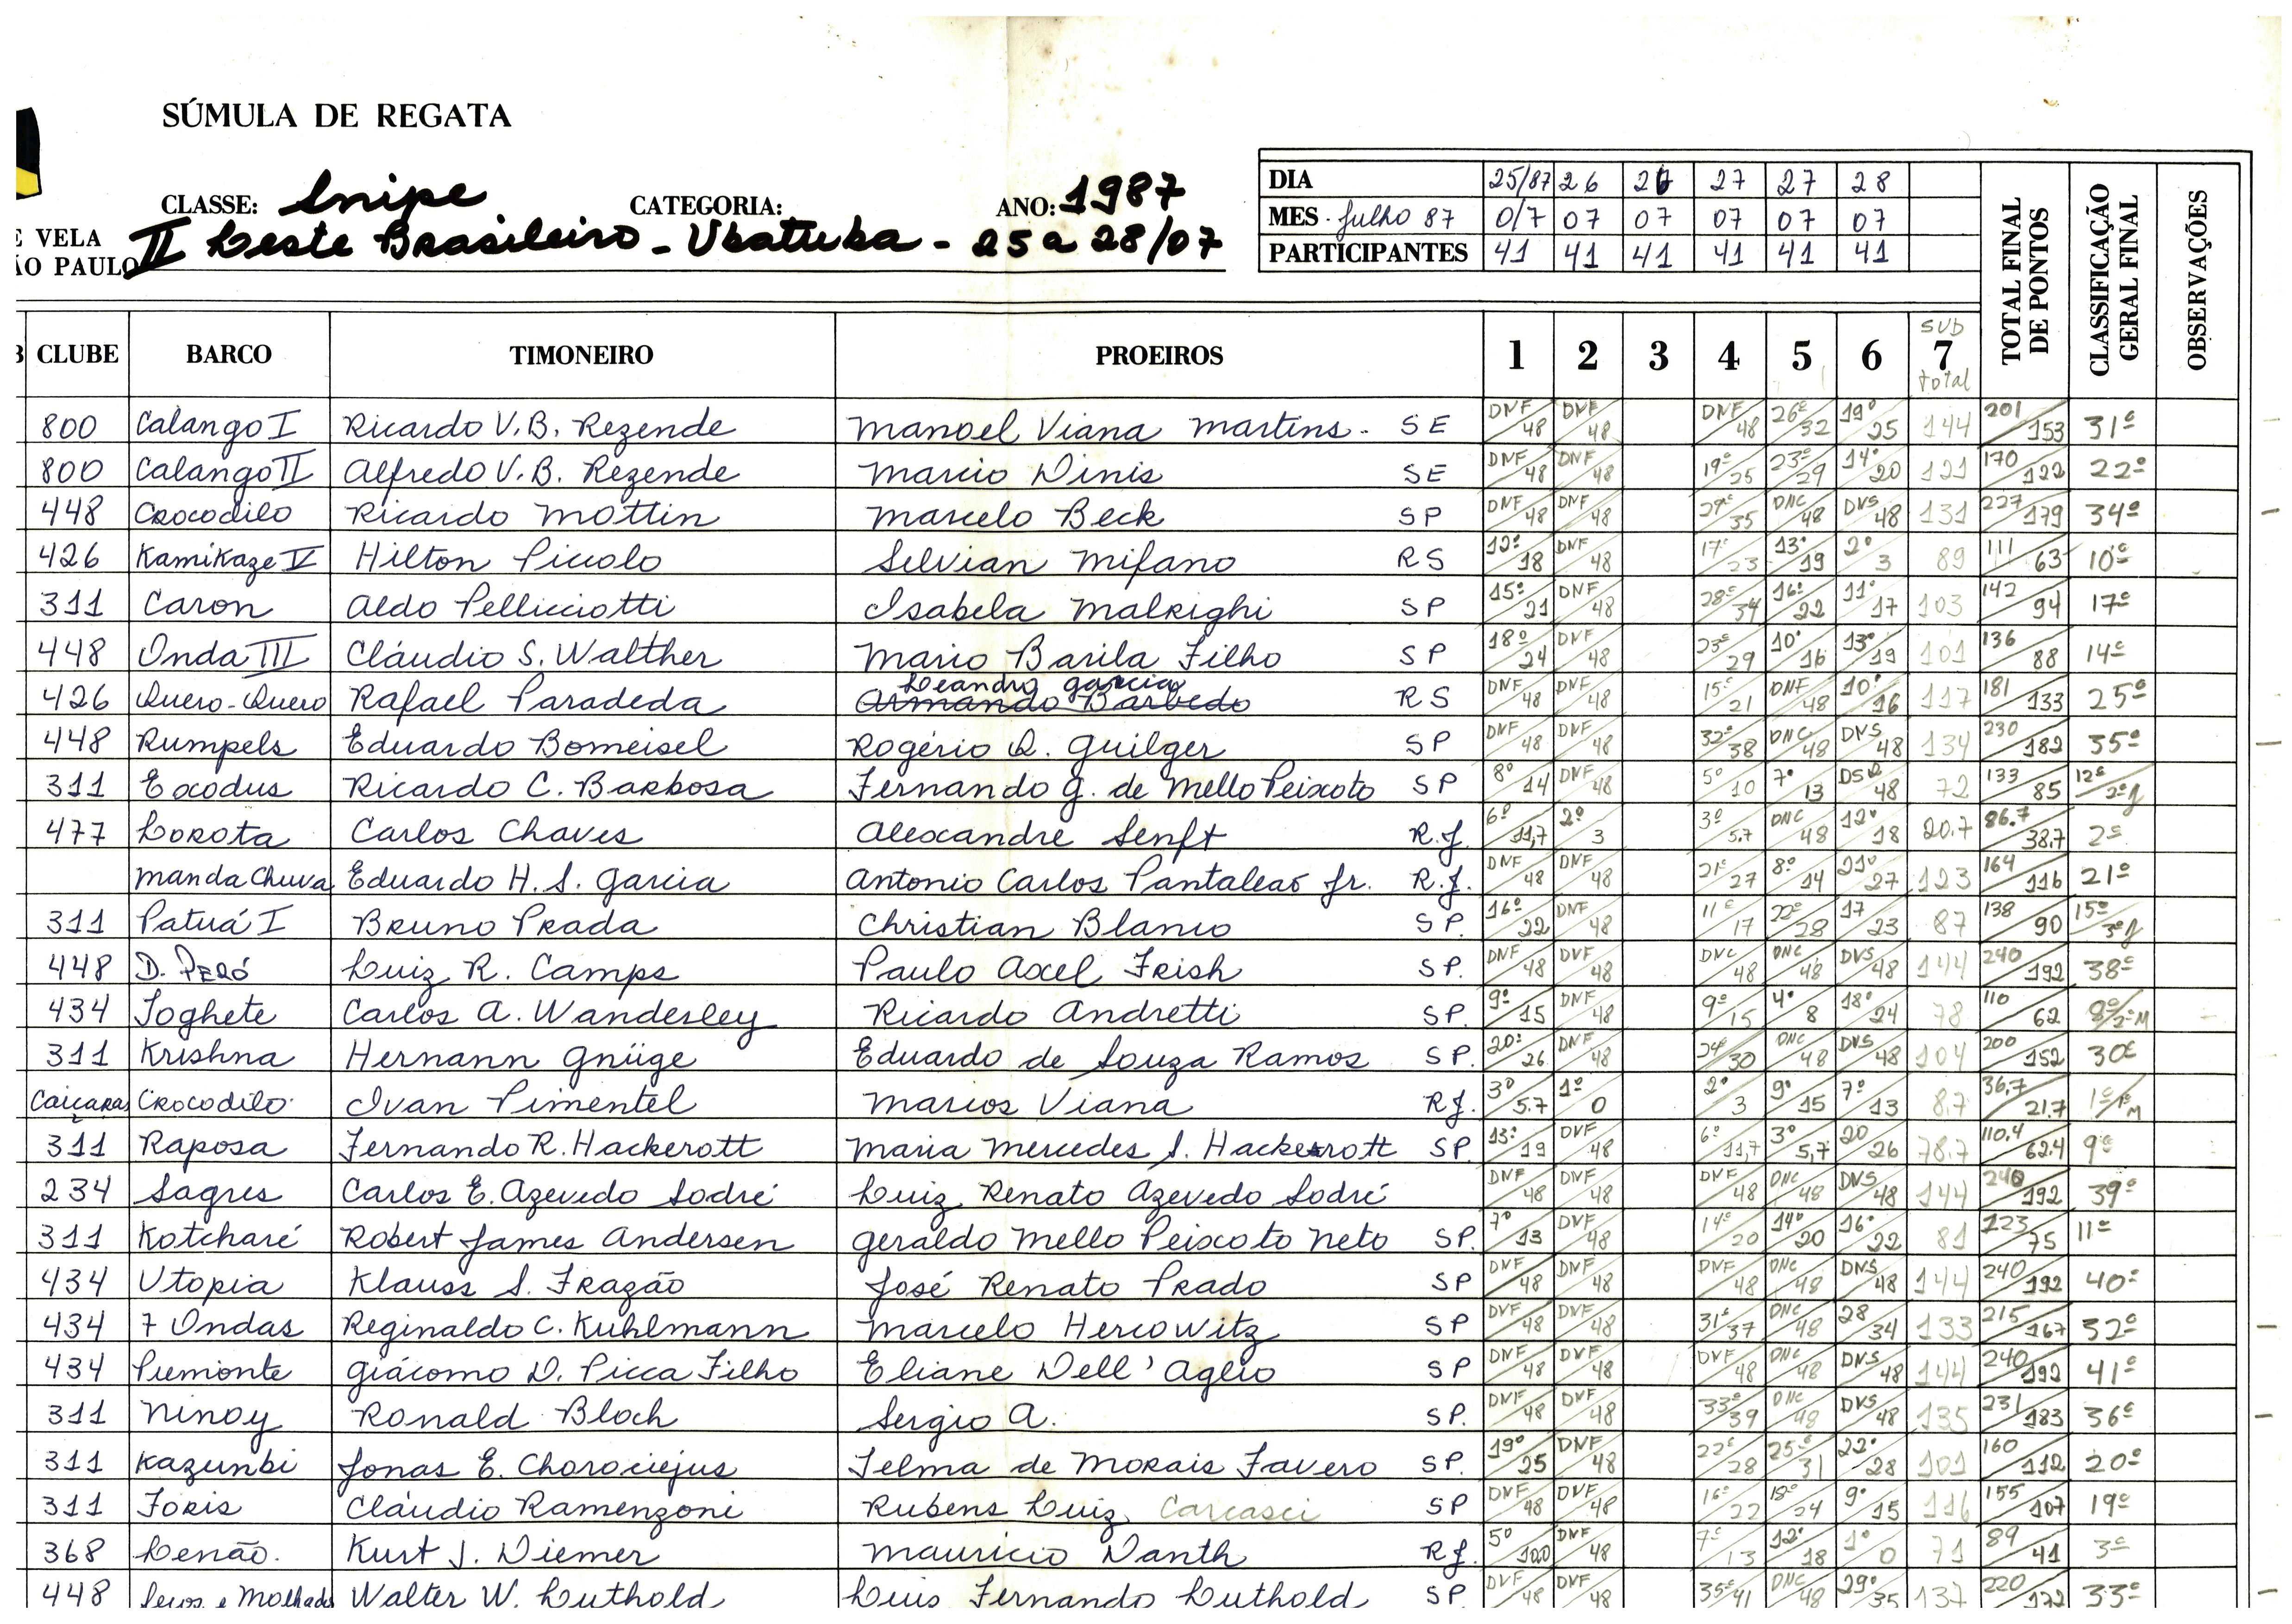 SÚMULA DE REGATA
CLASSE: Snipe CATEGORIA: ANO: 1987
E VELA
ÃO PAULO
II Leste Brasileiro - Ubatuba - 25 a 28/07
DIA 25/87 26 26 27 27 28
MES - Julho 87 0/7 07 07 07 07 07
PARTICIPANTES 41 41 41 41 41 41
TOTAL FINAL DE PONTOS
CLASSIFICAÇÃO GERAL FINAL
OBSERVAÇÕES
CLUBE BARCO TIMONEIRO PROEIROS 1 2 3 4 5 6 SUB 7 total
800 Calango I Ricardo V.B. Rezende Manoel Viana Martins - SE DNF/48 DNF/48 DNF/48 26º/32 19º/25 144 201/153 31º
800 Calango II Alfredo V.B. Rezende Marcio Dinis SE DNF/48 DNF/48 19º/25 23º/29 14º/20 121 170/122 22º
448 Crocodilo Ricardo Mottin Marcelo Beck SP DNF/48 DNF/48 29º/35 DNC/48 DNS/48 131 227/179 34º
426 Kamikaze V Hilton Piccolo Selvian Mifano RS 12º/18 DNF/48 17º/23 13º/19 2º/3 89 111/63 10º
311 Caron Aldo Pellicciotti Isabela Malrighi SP 15º/21 DNF/48 28º/34 16º/22 11º/17 103 142/94 17º
448 Onda III Cláudio S. Walther Mario Barila Filho SP 18º/24 DNF/48 23º/29 10º/16 13º/19 101 136/88 14º
426 Quero-Quero Rafael Paradeda Leandro Garcia Armando Barbedo RS DNF/48 DNF/48 15º/21 DNF/48 10º/16 117 181/133 25º
448 Rumpels Eduardo Bomeisel Rogério Q. Guilger SP DNF/48 DNF/48 32º/38 DNC/48 DNS/48 134 230/182 35º
311 Exodus Ricardo C. Barbosa Fernando G. de Mello Peixoto SP 8º/14 DNF/48 5º/10 7º/13 DSQ/48 72 133/85 12º/2ºJ
477 Lorota Carlos Chaves Alexandre Senft R.J. 6º/11,7 2º/3 3º/5.7 DNC/48 12º/18 20.7 86.7/38.7 2º
Manda Chuva Eduardo H.S. Garcia Antonio Carlos Pantaleaõ Jr. R.J. DNF/48 DNF/48 21º/27 8º/14 21º/27 123 164/116 21º
311 Patuá I Bruno Prada Christian Blanco SP. 16º/22 DNF/48 11º/17 22º/28 17/23 87 138/90 15º/3ºJ
448 D. PERÓ Luiz R. Camps Paulo Axel Frish SP. DNF/48 DNF/48 DNC/48 DNC/48 DNS/48 144 240/192 38º
434 Joghete Carlos A. Wanderley Ricardo Andretti SP. 9º/15 DNF/48 9º/15 4º/8 18º/24 78 110/62 8º/2ºM
311 Krishna Hernann Gnüge Eduardo de Souza Ramos SP. 20º/26 DNF/48 24º/30 DNC/48 DNS/48 104 200/152 30º
Caiçaras Crocodilo Ivan Pimentel Marcos Viana RJ. 3º/5.7 1º/0 2º/3 9º/15 7º/13 8.7 36,7/21.7 1º/1ºM
311 Raposa Fernando R. Hackerott Maria Mercedes S. Hackerott SP. 13º/19 DNF/48 6º/11,7 3º/5,7 20/26 78.7 110.4/62.4 9º
234 Sagres Carlos E. Azevedo Sodré Luiz Renato Azevedo Sodré DNF/48 DNF/48 DNF/48 DNC/48 DNS/48 144 240/192 39º
311 Kotcharé Robert James Andersen Geraldo Mello Peixoto Neto SP. 7º/13 DNF/48 14º/20 14º/20 16º/22 81 123/75 11º
434 Utopia Klauss S. Frazão José Renato Prado SP DNF/48 DNF/48 DNF/48 DNC/48 DNS/48 144 240/192 40º
434 7 Ondas Reginaldo C. Kuhlmann Marcelo Hercowitz SP DNF/48 DNF/48 31º/37 DNC/48 28/34 133 215/167 32º
434 Piemonte Giácomo D. Picca Filho Eliane Dell'Aglio SP DNF/48 DNF/48 DNF/48 DNC/48 DNS/48 144 240/192 41º
311 Ninoy Ronald Bloch Sergio A. SP. DNF/48 DNF/48 33º/39 DNC/48 DNS/48 135 231/183 36º
311 Kazunbi Jonas E. Chorociejus Telma de Morais Favero SP. 19º/25 DNF/48 22º/28 25º/31 22º/28 101 160/112 20º
311 Joris Cláudio Ramenzoni Rubens Luiz Carcasci SP DNF/48 DNF/48 16º/22 18º/24 9º/15 116 155/107 19º
368 Lenão. Kurt J. Diemer Mauricio Danth RJ. 5º/10.0 DNF/48 7º/13 12º/18 1º/0 71 89/41 3º
448 Secos e Molhados Walter W. Luthold Luis Fernando Luthold SP. DNF/48 DNF/48 35º/41 DNC/48 29º/35 137 220/172 33º